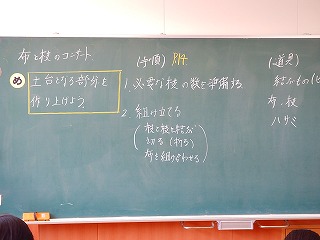 布と枝のコンサート
め
土台となる部分を
作り上げよう
(手順)
1. 必要な枝の数を準備する
2. 組み立てる
(枝と枝を結ぶ
切る(折る)
布を組み合わせる)
(道具)
結ぶもの(ヒ
布・枝
ハサミ